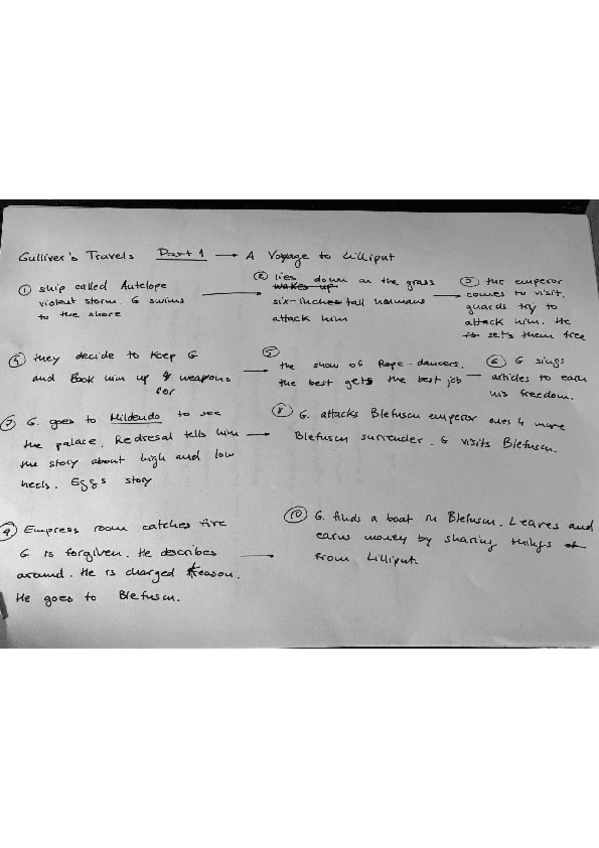 Gulliver's Travels Part 1 → A Voyage to Lilliput
① ship called Antelope
violent storm. G swims
to the shore
→
② lies down on the grass
wakes up
six-inches tall humans
attack him
→
③ the emperor
comes to visit.
guards try to
attack him. He
sets them free
④ they decide to keep G
and Book him up & weapons
for
→
⑤
the show of Rope-dancers.
the best gets the best job
→
⑥ G sings
articles to earn
his freedom.
⑦ G. goes to Mildendo to see
the palace. Redresal tells him
the story about high and low
heels. Eggs story
→
⑧ G. attacks Blefuscu emperor ones & more
Blefuscu surrender. G visits Blefuscu.
⑨ Empress room catches fire
G is forgiven. He describes
around. He is charged treason.
He goes to Blefuscu.
→
⑩ G. finds a boat in Blefuscu. Leaves and
earns money by sharing things
from Lilliput